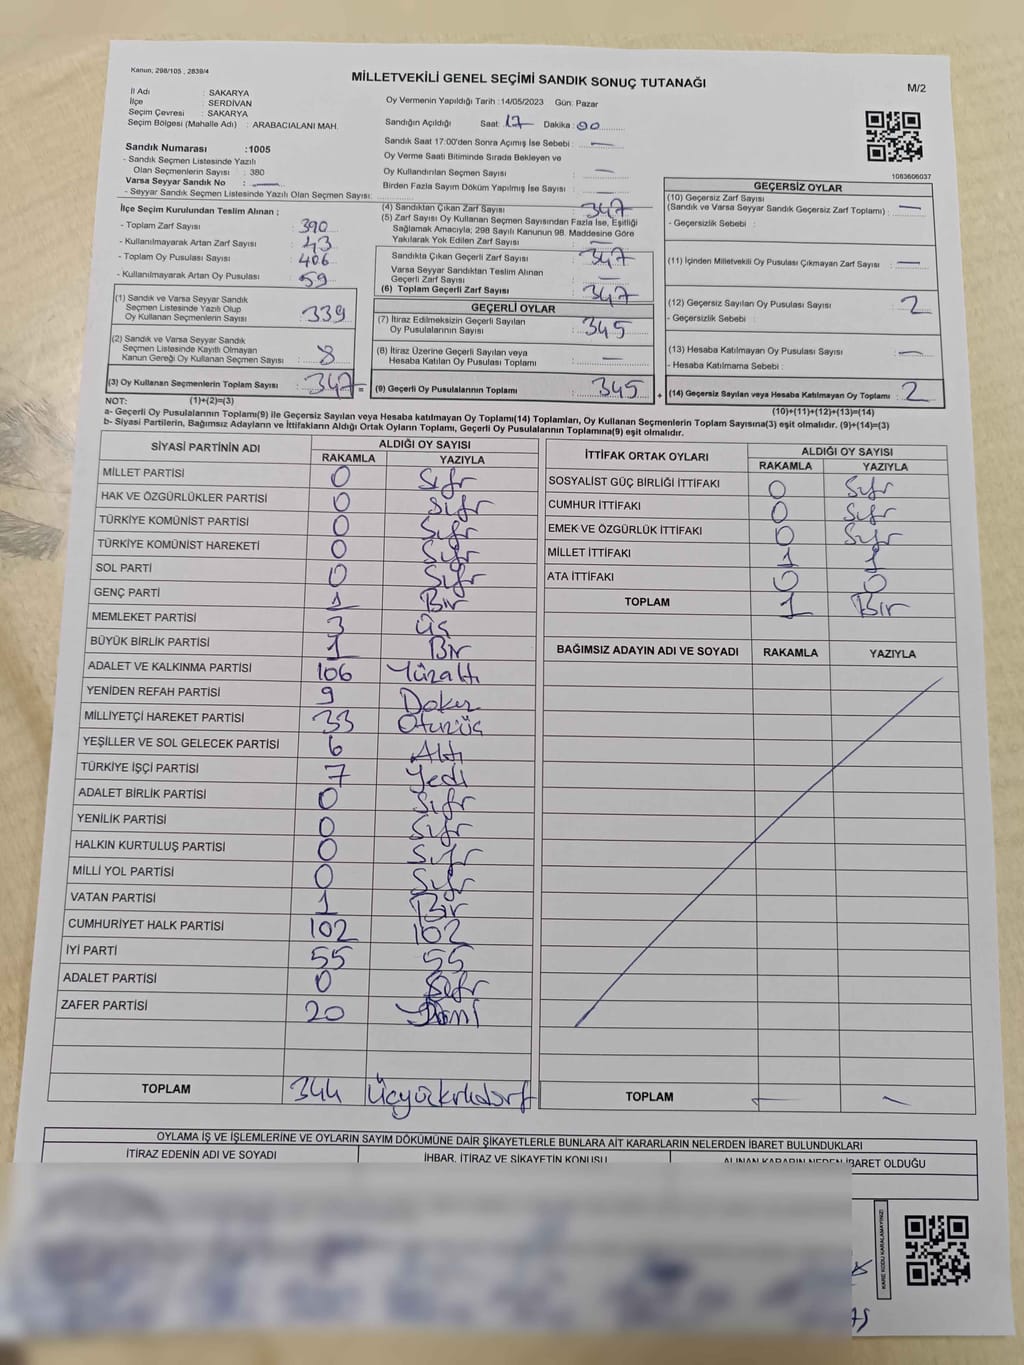 Kanun; 298/105 , 2839/4
MİLLETVEKİLİ GENEL SEÇİMİ SANDIK SONUÇ TUTANAĞI
M/2
İl Adı : SAKARYA
İlçe : SERDİVAN
Seçim Çevresi : SAKARYA
Seçim Bölgesi (Mahalle Adı) : ARABACIALANI MAH.
Oy Vermenin Yapıldığı Tarih :14/05/2023 Gün: Pazar
Sandığın Açıldığı Saat: 17 Dakika: 00
Sandık Saat 17:00'den Sonra Açımış İse Sebebi : —
Oy Verme Saati Bitiminde Sırada Bekleyen ve
Oy Kullandırılan Seçmen Sayısı : —
Birden Fazla Sayım Döküm Yapılmış İse Sayısı : —
1083606037
Sandık Numarası :1005
- Sandık Seçmen Listesinde Yazılı
Olan Seçmenlerin Sayısı : 380
Varsa Seyyar Sandık No : —
- Seyyar Sandık Seçmen Listesinde Yazılı Olan Seçmen Sayısı:
İlçe Seçim Kurulundan Teslim Alınan ;
- Toplam Zarf Sayısı : 390
- Kullanılmayarak Artan Zarf Sayısı : 43
- Toplam Oy Pusulası Sayısı : 406
- Kullanılmayarak Artan Oy Pusulası : 59
(1) Sandık ve Varsa Seyyar Sandık
Seçmen Listesinde Yazılı Olup
Oy Kullanan Seçmenlerin Sayısı : 339
(2) Sandık ve Varsa Seyyar Sandık
Seçmen Listesinde Kayıtlı Olmayan
Kanun Gereği Oy Kullanan Seçmen Sayısı : 8
(3) Oy Kullanan Seçmenlerin Toplam Sayısı : 347 =
(4) Sandıktan Çıkan Zarf Sayısı : 347
(5) Zarf Sayısı Oy Kullanan Seçmen Sayısından Fazla İse, Eşitliği
Sağlamak Amacıyla; 298 Sayılı Kanunun 98. Maddesine Göre
Yakılarak Yok Edilen Zarf Sayısı : —
Sandıkta Çıkan Geçerli Zarf Sayısı : 347
Varsa Seyyar Sandıktan Teslim Alınan
Geçerli Zarf Sayısı : —
(6) Toplam Geçerli Zarf Sayısı : 347
GEÇERLİ OYLAR
(7) İtiraz Edilmeksizin Geçerli Sayılan
Oy Pusulalarının Sayısı : 345
(8) İtiraz Üzerine Geçerli Sayılan veya
Hesaba Katılan Oy Pusulası Toplamı : —
(9) Geçerli Oy Pusulalarının Toplamı : 345 +
GEÇERSİZ OYLAR
(10) Geçersiz Zarf Sayısı
(Sandık ve Varsa Seyyar Sandık Geçersiz Zarf Toplamı) : —
- Geçersizlik Sebebi :
(11) İçinden Milletvekili Oy Pusulası Çıkmayan Zarf Sayısı : —
(12) Geçersiz Sayılan Oy Pusulası Sayısı : 2
- Geçersizlik Sebebi :
(13) Hesaba Katılmayan Oy Pusulası Sayısı : —
- Hesaba Katılmama Sebebi :
(14) Geçersiz Sayılan veya Hesaba Katılmayan Oy Toplamı : 2
NOT: (1)+(2)=(3)
(10)+(11)+(12)+(13)=(14)
a- Geçerli Oy Pusulalarının Toplamı(9) ile Geçersiz Sayılan veya Hesaba katılmayan Oy Toplamı(14) Toplamları, Oy Kullanan Seçmenlerin Toplam Sayısına(3) eşit olmalıdır. (9)+(14)=(3)
b- Siyasi Partilerin, Bağımsız Adayların ve İttifakların Aldığı Ortak Oyların Toplamı, Geçerli Oy Pusulalarının Toplamına(9) eşit olmalıdır.
SİYASİ PARTİNİN ADI ALDIĞI OY SAYISI
RAKAMLA YAZIYLA
MİLLET PARTİSİ 0 Sıfır
HAK VE ÖZGÜRLÜKLER PARTİSİ 0 Sıfır
TÜRKİYE KOMÜNİST PARTİSİ 0 Sıfır
TÜRKİYE KOMÜNİST HAREKETİ 0 Sıfır
SOL PARTİ 0 Sıfır
GENÇ PARTİ 1 Bir
MEMLEKET PARTİSİ 3 üç
BÜYÜK BİRLİK PARTİSİ 1 Bir
ADALET VE KALKINMA PARTİSİ 106 Yüzaltı
YENİDEN REFAH PARTİSİ 9 Dokuz
MİLLİYETÇİ HAREKET PARTİSİ 33 Otuzüç
YEŞİLLER VE SOL GELECEK PARTİSİ 6 Altı
TÜRKİYE İŞÇİ PARTİSİ 7 Yedi
ADALET BİRLİK PARTİSİ 0 Sıfır
YENİLİK PARTİSİ 0 Sıfır
HALKIN KURTULUŞ PARTİSİ 0 Sıfır
MİLLİ YOL PARTİSİ 0 Sıfır
VATAN PARTİSİ 1 Bir
CUMHURİYET HALK PARTİSİ 102 102
İYİ PARTİ 55 55
ADALET PARTİSİ 0 Sıfır
ZAFER PARTİSİ 20
TOPLAM 344 Üçyüzkırkdört
İTTİFAK ORTAK OYLARI ALDIĞI OY SAYISI
RAKAMLA YAZIYLA
SOSYALİST GÜÇ BİRLİĞİ İTTİFAKI 0 Sıfır
CUMHUR İTTİFAKI 0 Sıfır
EMEK VE ÖZGÜRLÜK İTTİFAKI 0 Sıfır
MİLLET İTTİFAKI 1 1
ATA İTTİFAKI 0 0
TOPLAM 1 Bir
BAĞIMSIZ ADAYIN ADI VE SOYADI RAKAMLA YAZIYLA
TOPLAM — —
OYLAMA İŞ VE İŞLEMLERİNE VE OYLARIN SAYIM DÖKÜMÜNE DAİR ŞİKAYETLERLE BUNLARA AİT KARARLARIN NELERDEN İBARET BULUNDUKLARI
İTİRAZ EDENİN ADI VE SOYADI İHBAR, İTİRAZ VE ŞİKAYETİN KONUSU ALINAN KARARIN NEDEN İBARET OLDUĞU
KARE KODU KARALAMAYINIZ!